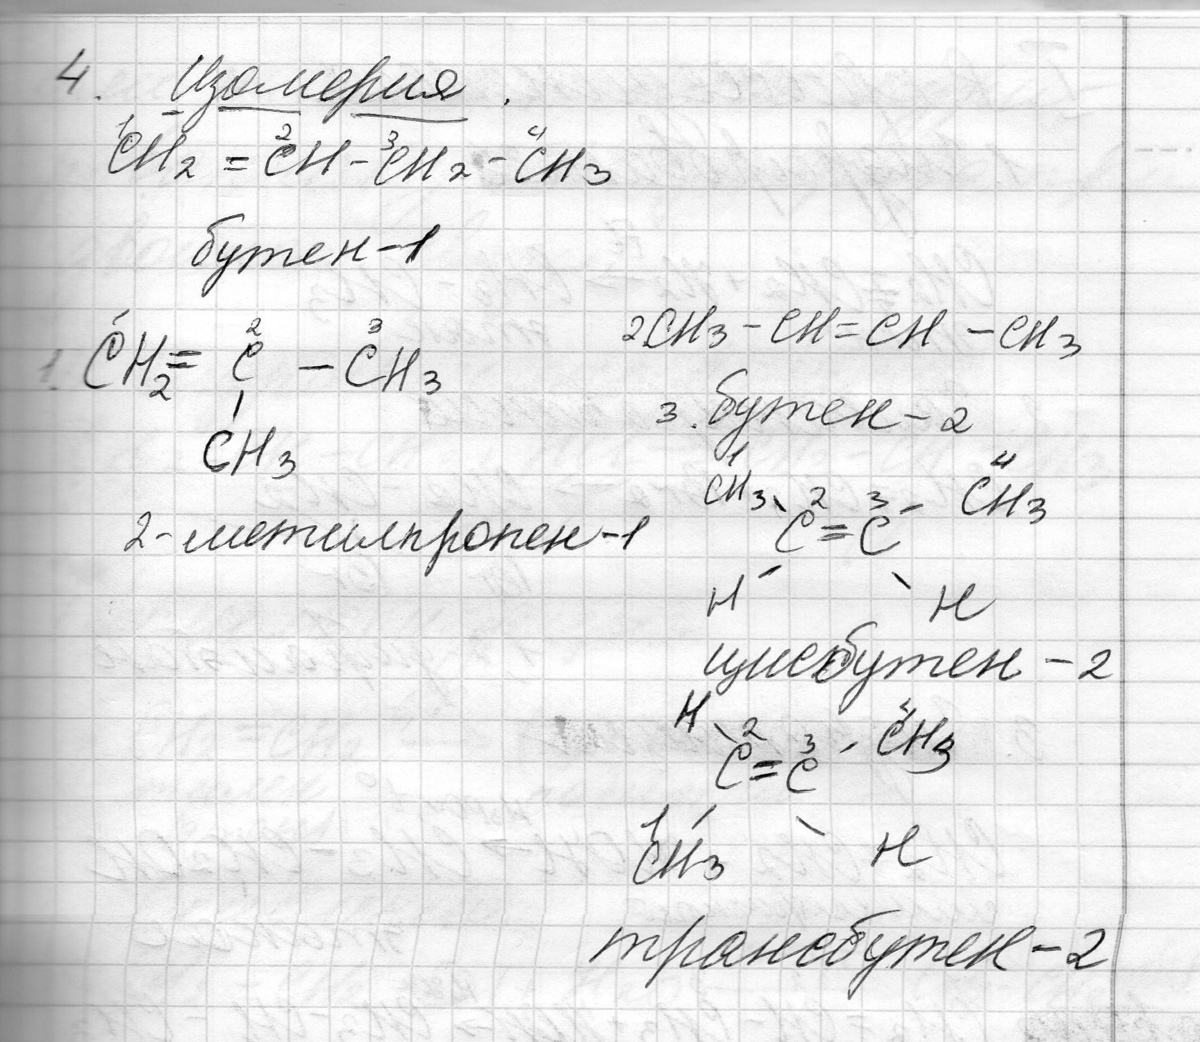 4. Изомерия.
1 2 3 4
CH2 = CH - CH2 - CH3
бутен-1
1 2 3
1. CH2 = C - CH3
CH3
2-метилпропен-1
2 CH3 - CH = CH - CH3
3. бутен-2
1 2 3 4
CH3 C = C CH3
H H
цисбутен-2
H 2 3 4 CH3
C = C
1
CH3 H
трансбутен-2